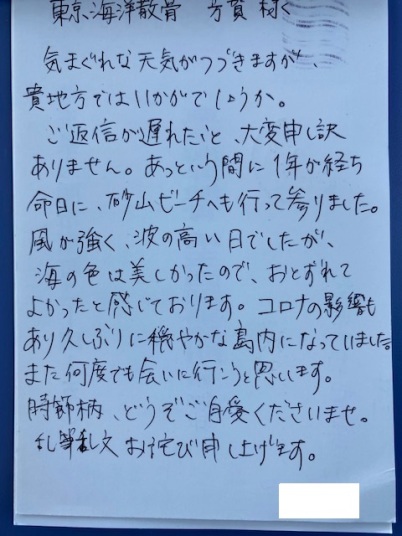 東京海洋散骨
気まぐれな天気がつづきますが、
貴地方ではいかがでしょうか。
ご返信が遅れたこと、大変申し訳
ありません。あっという間に1年が経ち
命日に、砂山ビーチへも行って参りました。
風が強く、波の高い日でしたが、
海の色は美しかったので、おとずれて
よかったと感じております。コロナの影響も
あり久しぶりに穏やかな島内になっていました。
また何度でも会いに行こうと思います。
時節柄、どうぞご自愛くださいませ。
乱筆乱文お詫び申し上げます。